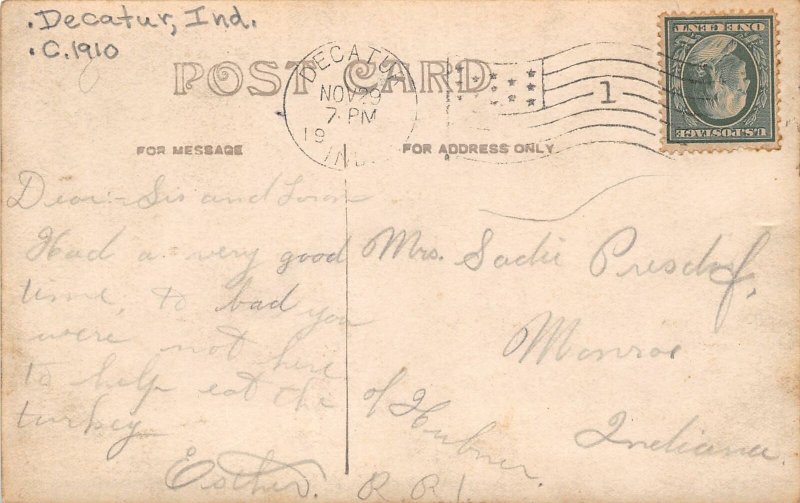 .Decatur, Ind.
.C.1910
POST CARD
DECATUR
NOV 29
7 PM
19
IND.
1
U.S. POSTAGE
ONE CENT
FOR MESSAGE
FOR ADDRESS ONLY
Dear Sis and
Had a very good
time, to bad you
were not here
to help eat the
turkey
Esther.
Mrs. Sadie
Monroe
Indiana.
% Hubner.
R R 1.